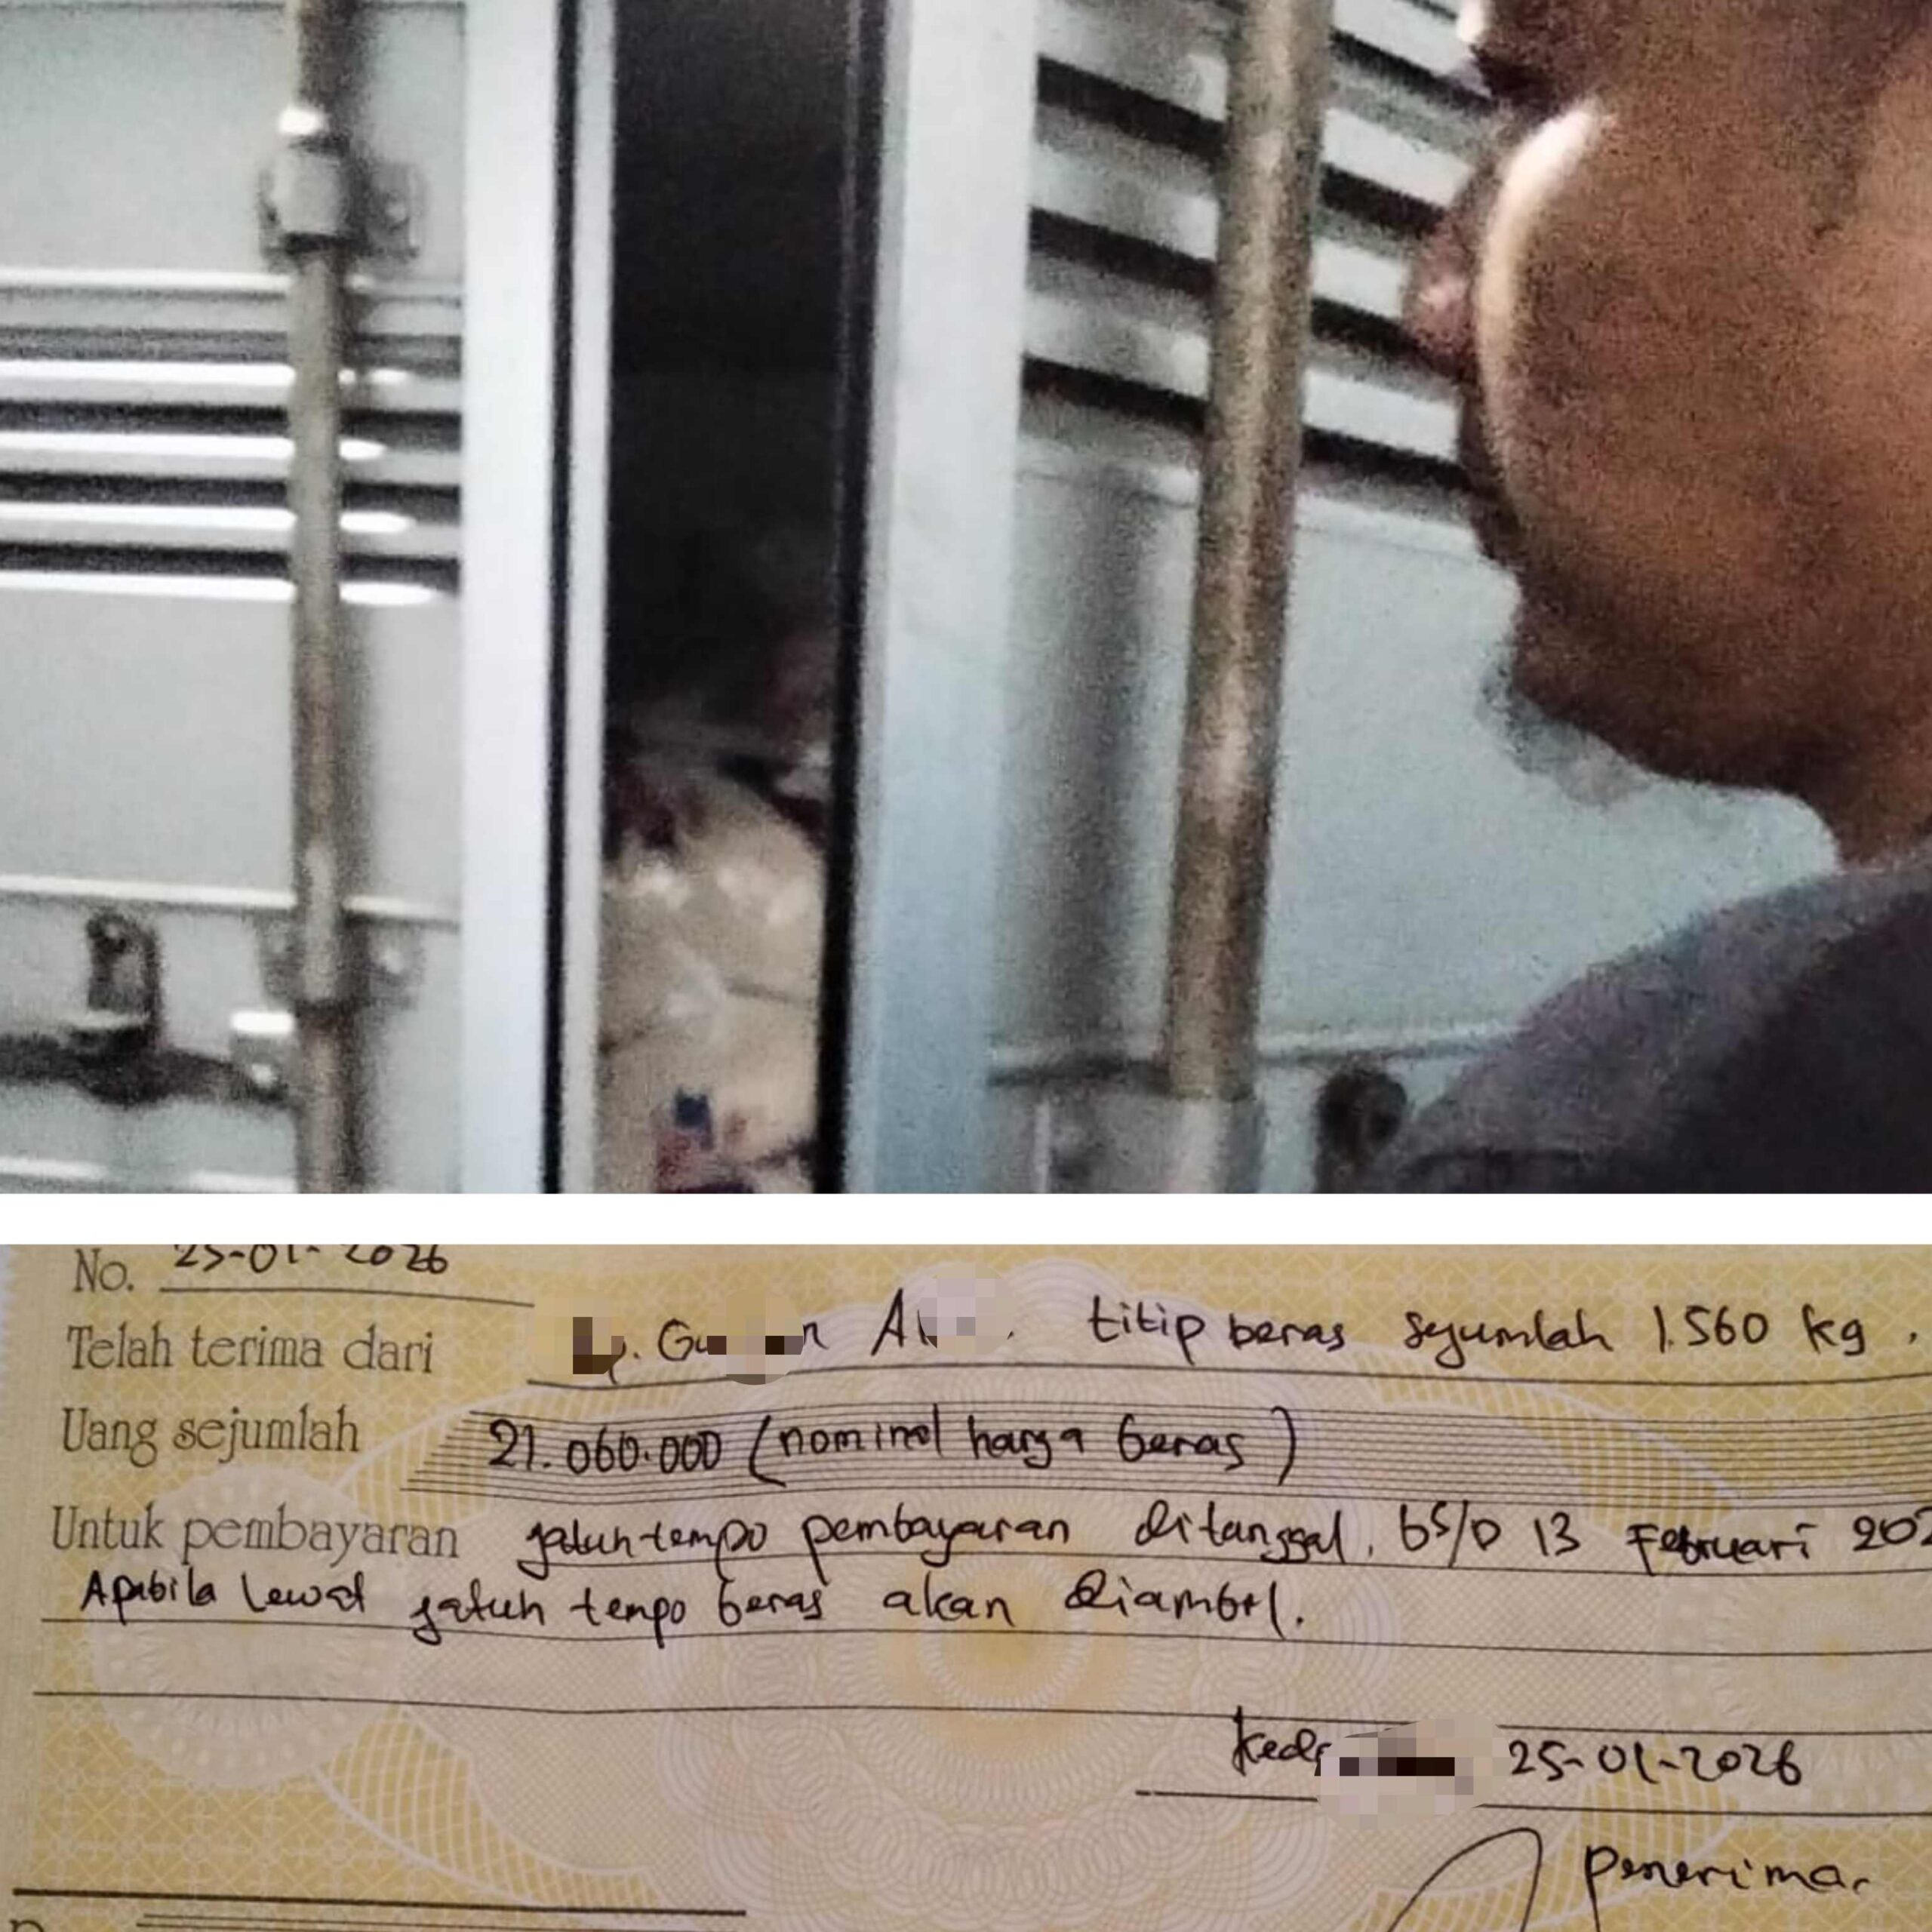 No. 25-01-2026
Telah terima dari A titip beras sejumlah 1.560 kg.
Uang sejumlah 21.060.000 (nominal harga beras)
Untuk pembayaran jatuh tempo pembayaran ditanggal. bs/d 13 Februari
Apabila lewat jatuh tempo beras akan diambil.
25-01-2026
Penerima